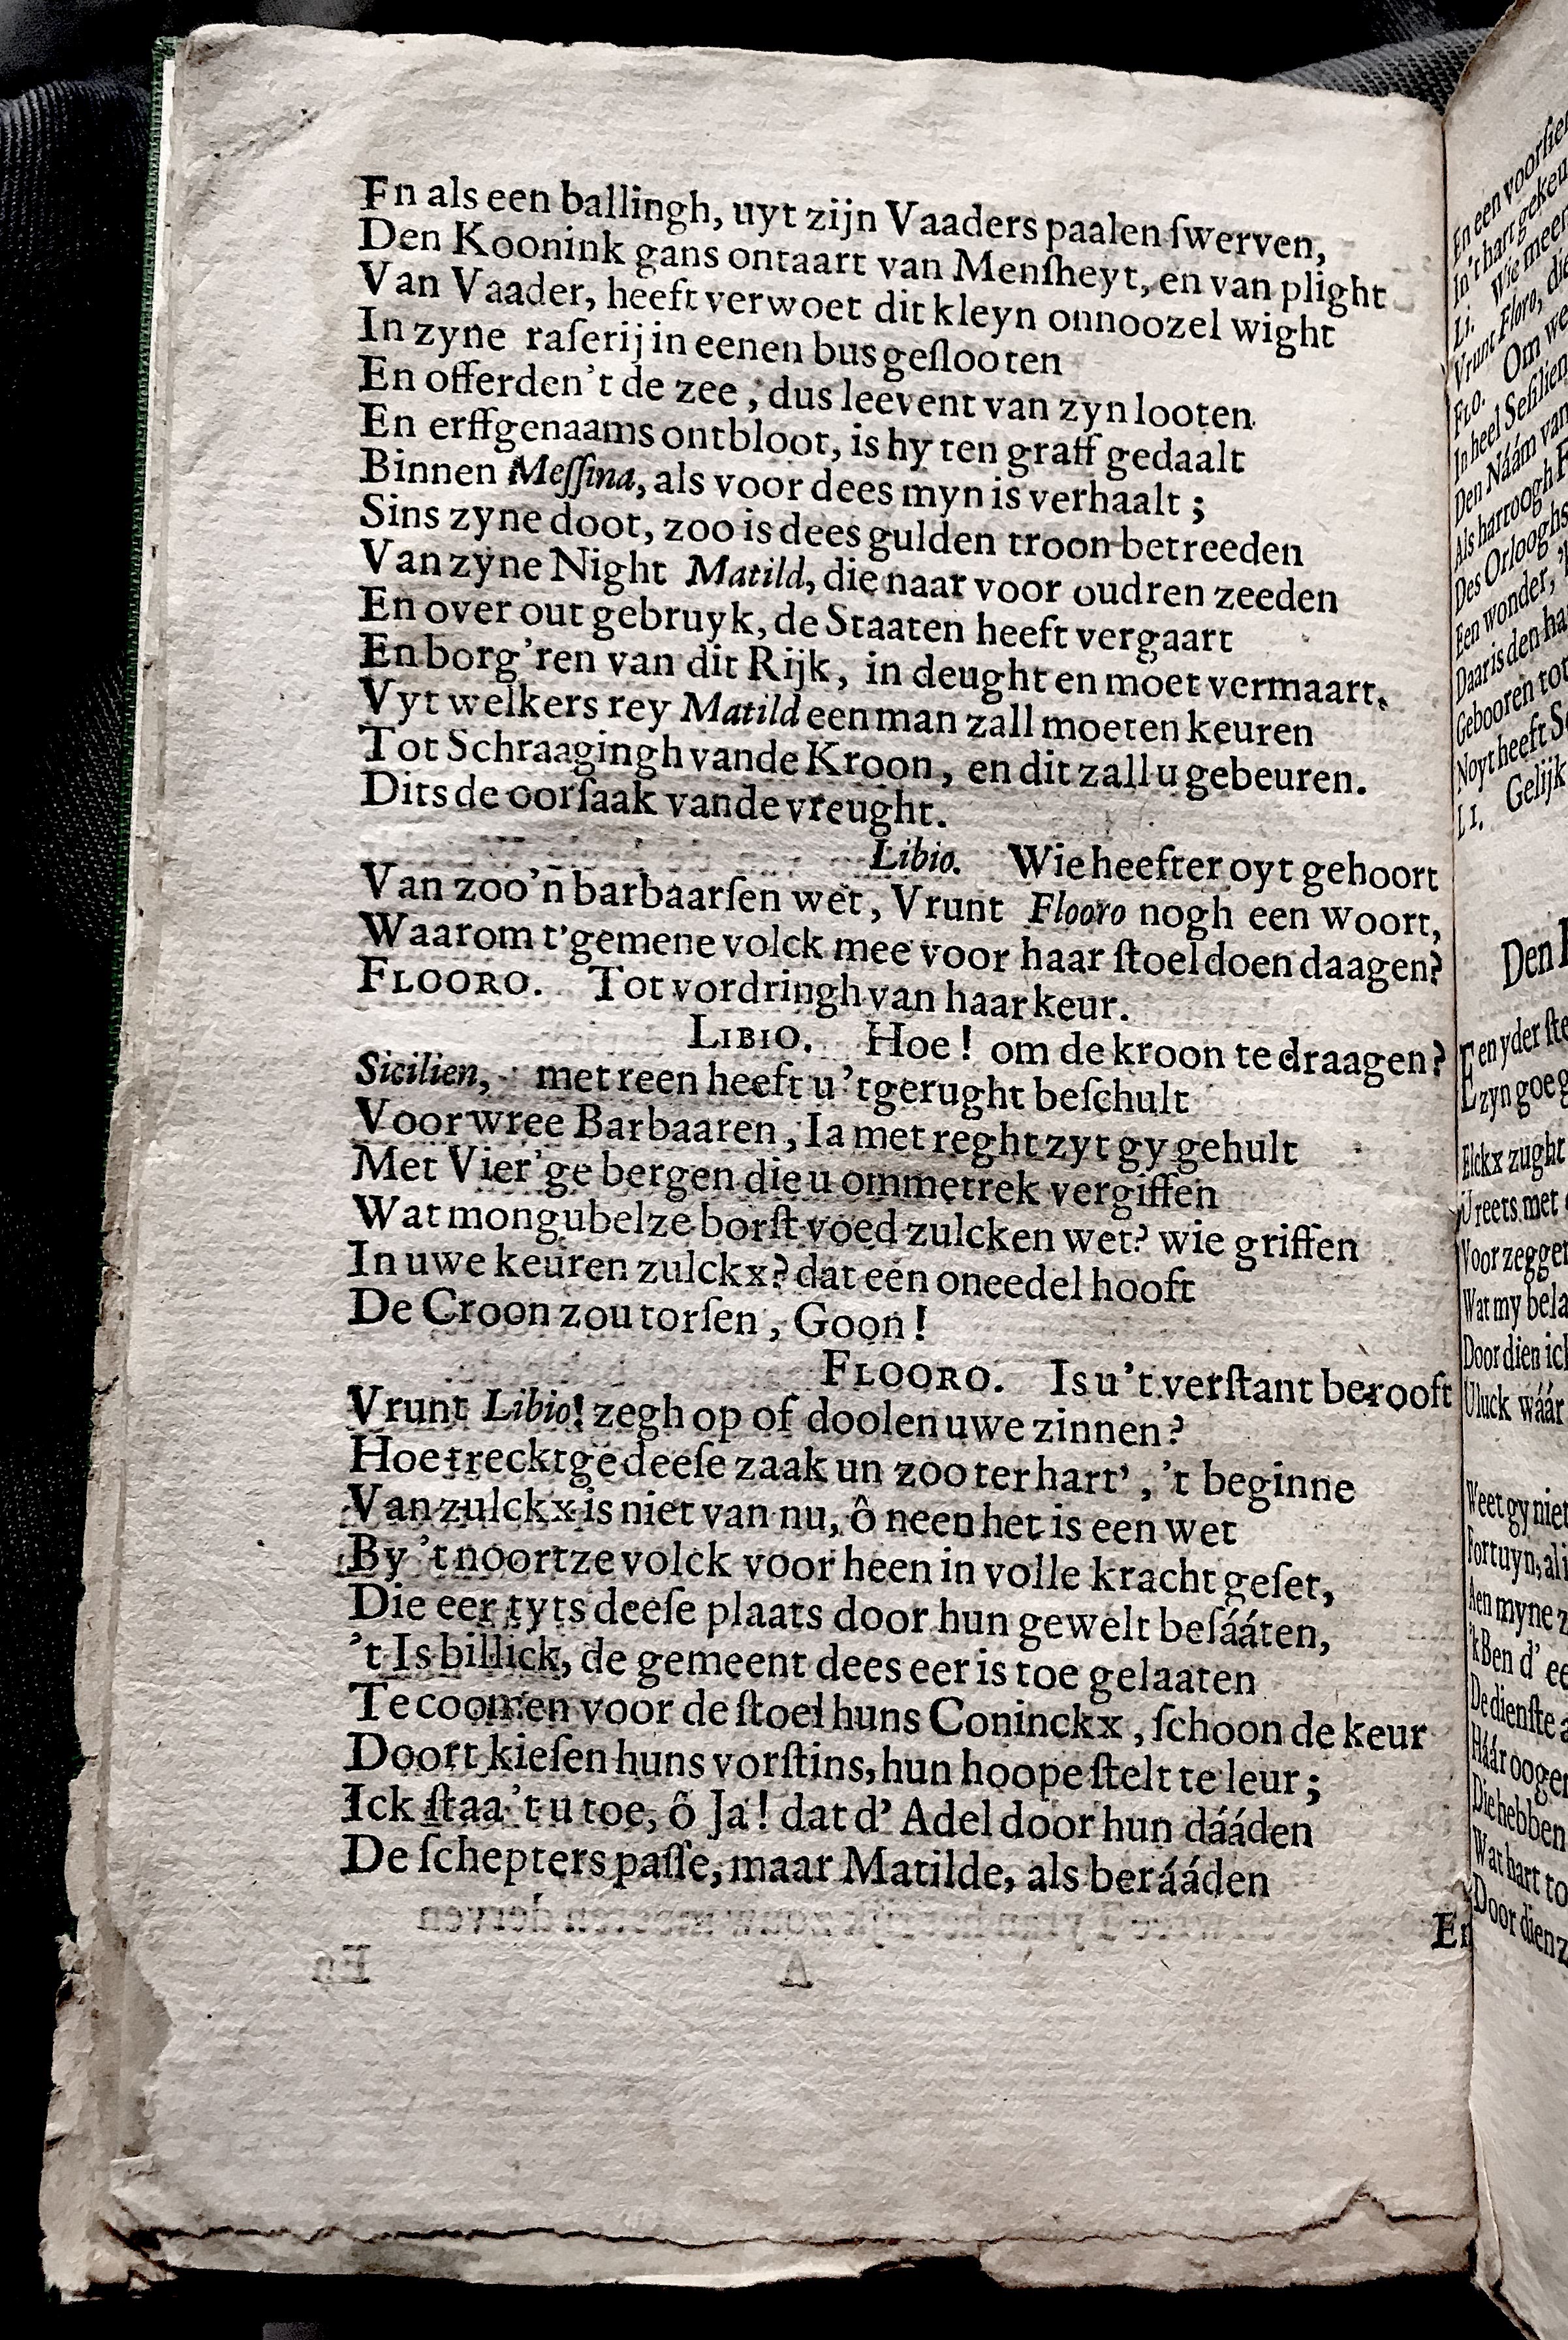 En als een ballingh, uyt zijn Vaaders paalen ſwerven,
Den Koonink gans ontaart van Menſheyt, en van plight
Van Vaader, heeft verwoet dit kleyn onnoozel wight
In zyne raſerij in eenen bus geſlooten
En offerden't de zee, dus leevent van zyn looten
En erffgenaams ontbloot, is hy ten graff gedaalt
Binnen Meſſina, als voor dees myn is verhaalt;
Sins zyne doot, zoo is dees gulden troon betreeden
Van zyne Night Matild, die naar voor oudren zeeden
En over out gebruyk, de Staaten heeft vergaart
En borg'ren van dit Rijk, in deught en moet vermaart.
Vyt welkers rey Matild een man zall moeten keuren
Tot Schraagingh vande Kroon, en dit zall u gebeuren.
Dits de oorſaak vande vreught.
Libio. Wie heefter oyt gehoort
Van zoo'n barbaarſen wet, Vrunt Flooro nogh een woort,
Waarom t'gemene volck mee voor haar ſtoel doen daagen?
FLOORO. Tot vordringh van haar keur.
LIBIO. Hoe! om de kroon te draagen?
Sicilien, met reen heeft u 't gerught beſchult
Voor wree Barbaaren, Ia met reght zyt gy gehult
Met Vier'ge bergen die u ommetrek vergiffen
Wat mongubelze borſt voed zulcken wet? wie griffen
In uwe keuren zulckx? dat een oneedel hooft
De Croon zou torſen, Goon!
FLOORO. Is u 't verſtant berooft
Vrunt Libio! zegh op of doolen uwe zinnen?
Hoe trecktge deeſe zaak un zoo ter hart', 't beginne
Van zulckx is niet van nu, ô neen het is een wet
By 't noortze volck voor heen in volle kracht geſet,
Die eer tyts deeſe plaats door hun gewelt beſááten,
't Is billick, de gemeent dees eer is toe gelaaten
Te coomen voor de ſtoel huns Coninckx, ſchoon de keur
Doort kieſen huns vorſtins, hun hoope ſtelt te leur;
Ick ſtaa 't u toe, ô Ja! dat d' Adel door hun dááden
De ſchepters paſſe, maar Matilde, als berááden
En
En een voorſie
In't hart geken
LI. Wie meen
Vrunt Floro, die
FLO. Om we
In heel Seſilien
Den Náám van
Als harroogh F
Des Orlooghs
Een wonder,
Daar is den ha
Gebooren tot
Noyt heeft S
LI. Gelijk
Den
Een yder ſte
zyn goe g
Elckx zught
Ureets met
Voor zeggen
Wat my bela
Door dien ick
Uluck wáár
Weet gy niet
Fortuyn, al
Aen myne z
'k Ben d' ee
De dienſte a
Háár oogen
Die hebben
Wat hart to
Door dien z